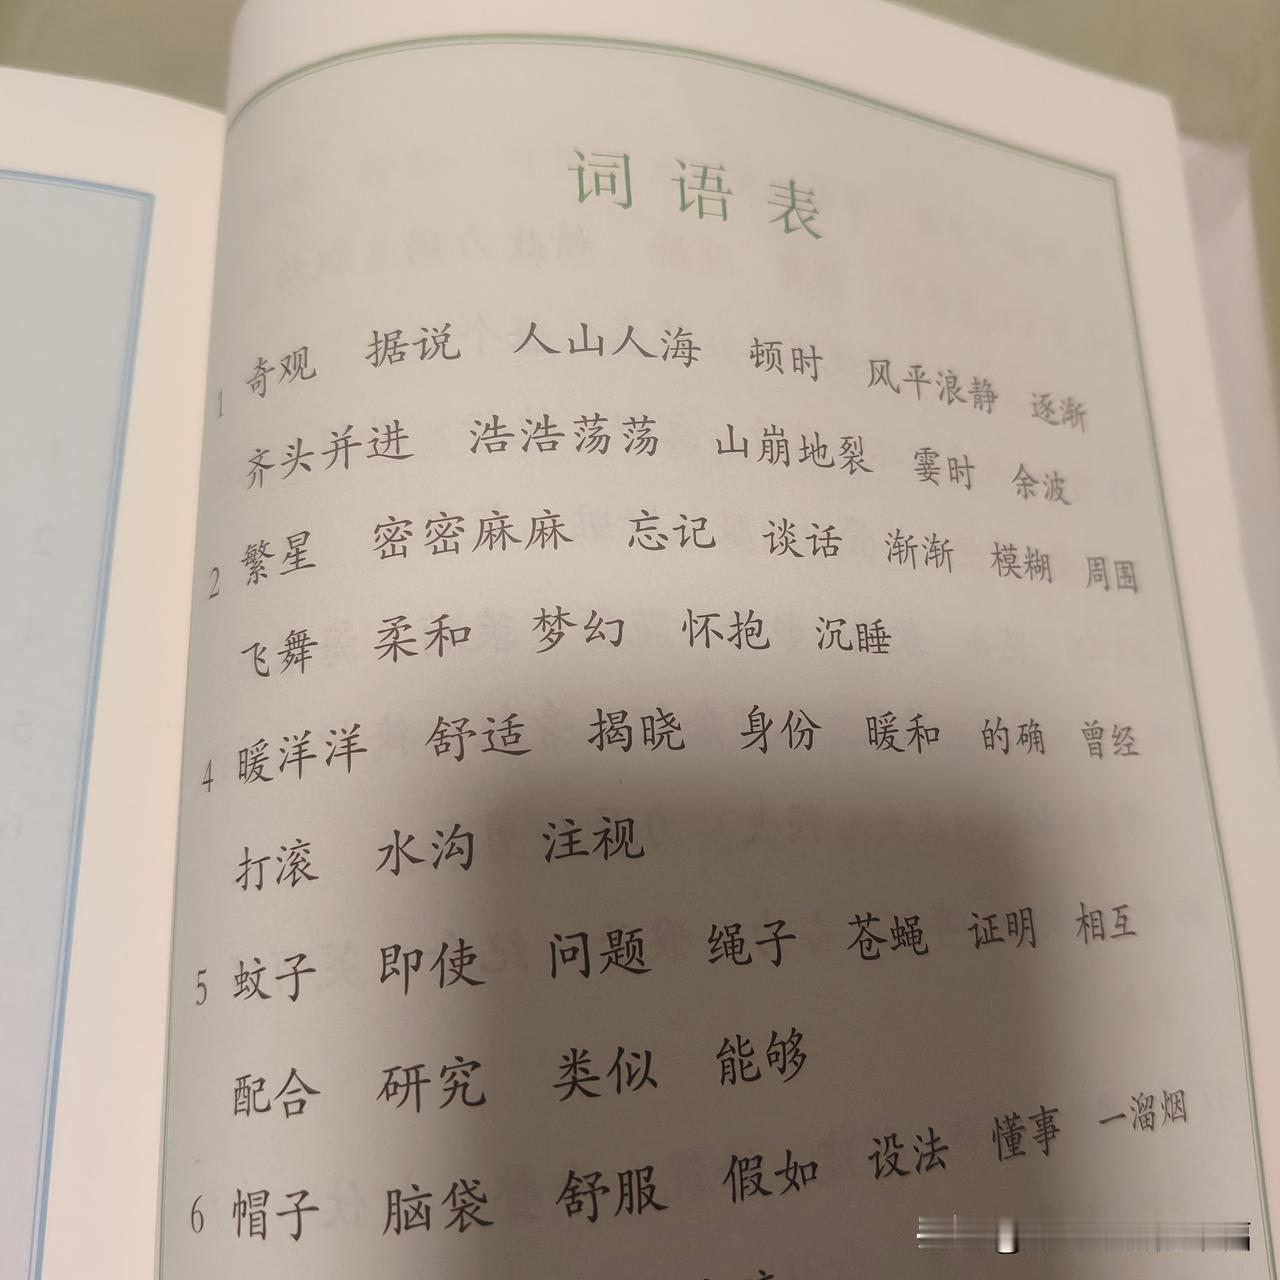 词语表
1 奇观 据说 人山人海 顿时 风平浪静 逐渐
齐头并进 浩浩荡荡 山崩地裂 霎时 余波
2 繁星 密密麻麻 忘记 谈话 渐渐 模糊 周围
飞舞 柔和 梦幻 怀抱 沉睡
4 暖洋洋 舒适 揭晓 身份 暖和 的确 曾经
打滚 水沟 注视
5 蚊子 即使 问题 绳子 苍蝇 证明 相互
配合 研究 类似 能够
6 帽子 脑袋 舒服 假如 设法 懂事 一溜烟